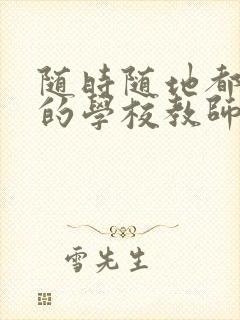 随時随地都
的學校教師
雪先生